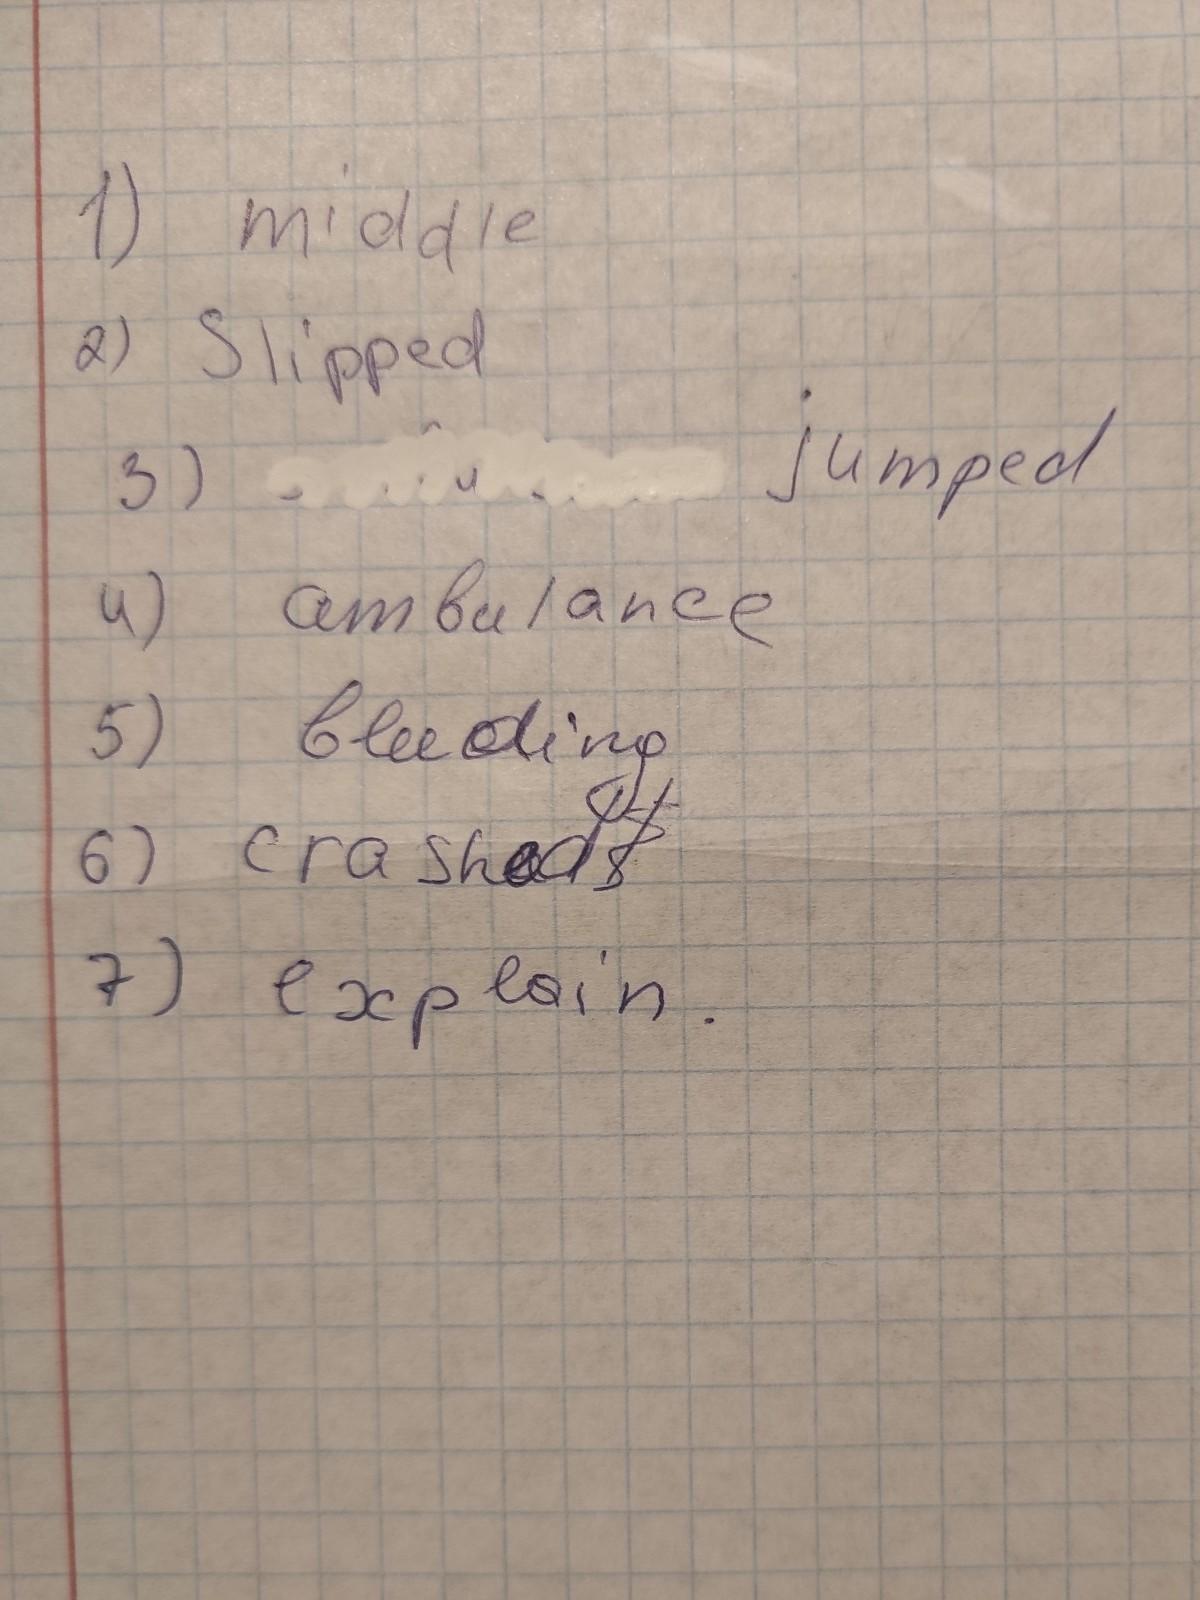 1) middle
2) Slipped
3) jumped
4) ambulance
5) bleeding
6) crashed
7) explain.